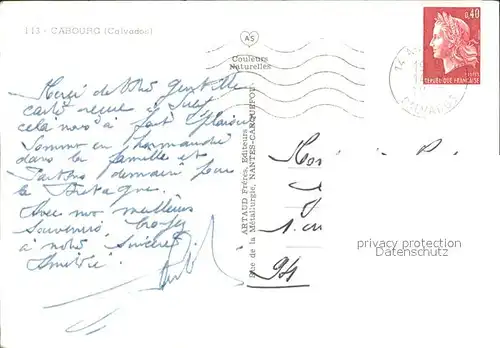 113 - CABOURG (Calvados)
AS
Couleurs
Naturelles
0,40
REPUBLIQUE FRANÇAISE
14
CALVADOS
Merci de votre gentille
carte reçue à
cela nous a fait plaisir
Sommes en Normandie
dans la famille et
Partons demain pour
la Bretagne.
Avec nos meilleurs
Souvenirs. Croyez
à notre sincère
Amitié.
ARTAUD Frères, Editeurs
Rue de la Métallurgie, NANTES-CARQUEFOU
94
privacy protection
Datenschutz